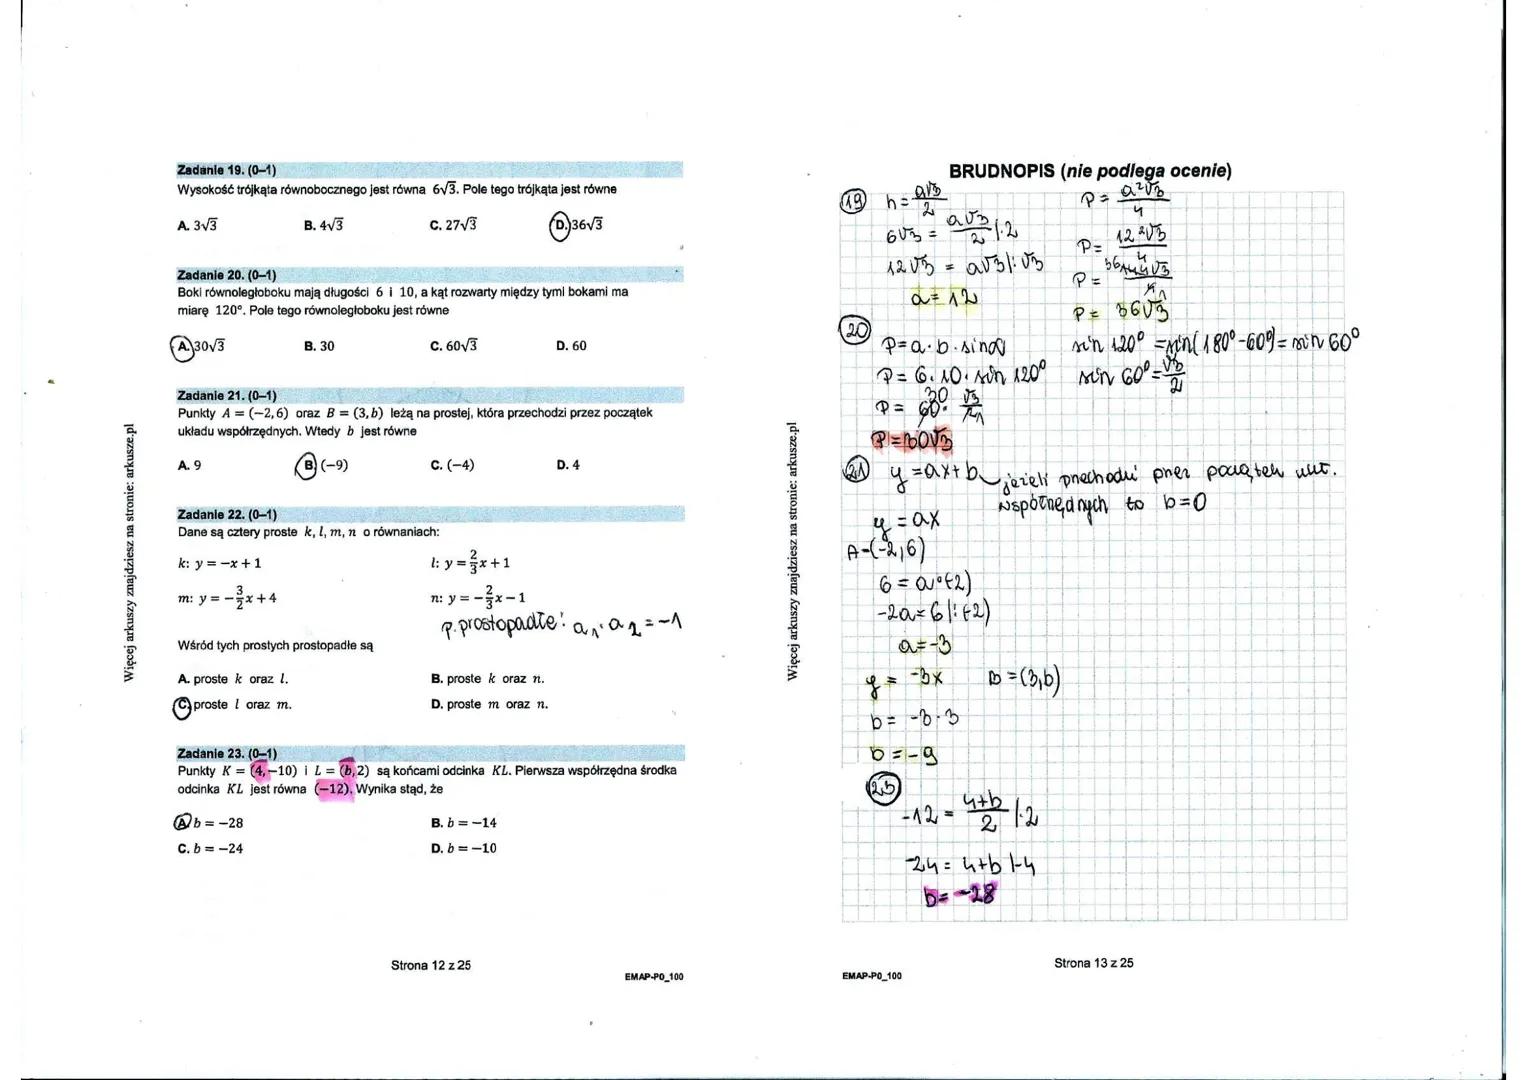 Więcej arkuszy znajdziesz na stronie: arkusze.pl
Zadanie 19. (0–1)
Wysokość trójkąta równobocznego jest równa 6√3. Pole tego trójkąta jest równe
A. 3√3 B. 4√3 C. 27√3 D. 36√3
Zadanie 20. (0–1)
Boki równoległoboku mają długości 6 i 10, a kąt rozwarty między tymi bokami ma
miarę 120°. Pole tego równoległoboku jest równe
A. 30√3 B. 30 C. 60√3 D. 60
Zadanie 21. (0–1)
Punkty A = (−2, 6) oraz B = (3, b) leżą na prostej, która przechodzi przez początek
układu współrzędnych. Wtedy b jest równe
A. 9 B. (−9) C. (−4) D. 4
Zadanie 22. (0–1)
Dane są cztery proste k, l, m, n o równaniach:
k: y = −x + 1 l: y = 2/3 x + 1
m: y = −3/2 x + 4 n: y = −2/3 x − 1
p. prostopadłe: a₁·a₂ = −1
Wśród tych prostych prostopadłe są
A. proste k oraz l. B. proste k oraz n.
C. proste l oraz m. D. proste m oraz n.
Zadanie 23. (0–1)
Punkty K = (4, −10) i L = (b, 2) są końcami odcinka KL. Pierwsza współrzędna środka
odcinka KL jest równa (−12). Wynika stąd, że
A. b = −28 B. b = −14
C. b = −24 D. b = −10
Strona 12 z 25
EMAP-P0_100
Więcej arkuszy znajdziesz na stronie: arkusze.pl
BRUDNOPIS (nie podlega ocenie)
19 h = a√3/2 P = a²√3/4
6√3 = a√3/2 |·2 P = 12²√3/4
12√3 = a√3 |:√3 P = 36 144√3/4 1
a = 12 P = 36√3
20
P = a·b·sinα sin 120° = sin(180°-60°) = sin 60°
P = 6·10·sin 120° sin 60° = √3/2
P = 30 60·√3/2 1
P = 30√3
21 y = ax + b jeżeli przechodzi przez początek ukł.
współrzędnych to b = 0
y = ax
A = (-2,6)
6 = a·(-2)
-2a = 6 |:(-2)
a = -3
y = -3x B = (3,b)
b = -3·3
b = -9
23
-12 = 4+b/2 |·2
-24 = 4+b |-4
b = -28
Strona 13 z 25
EMAP-P0_100